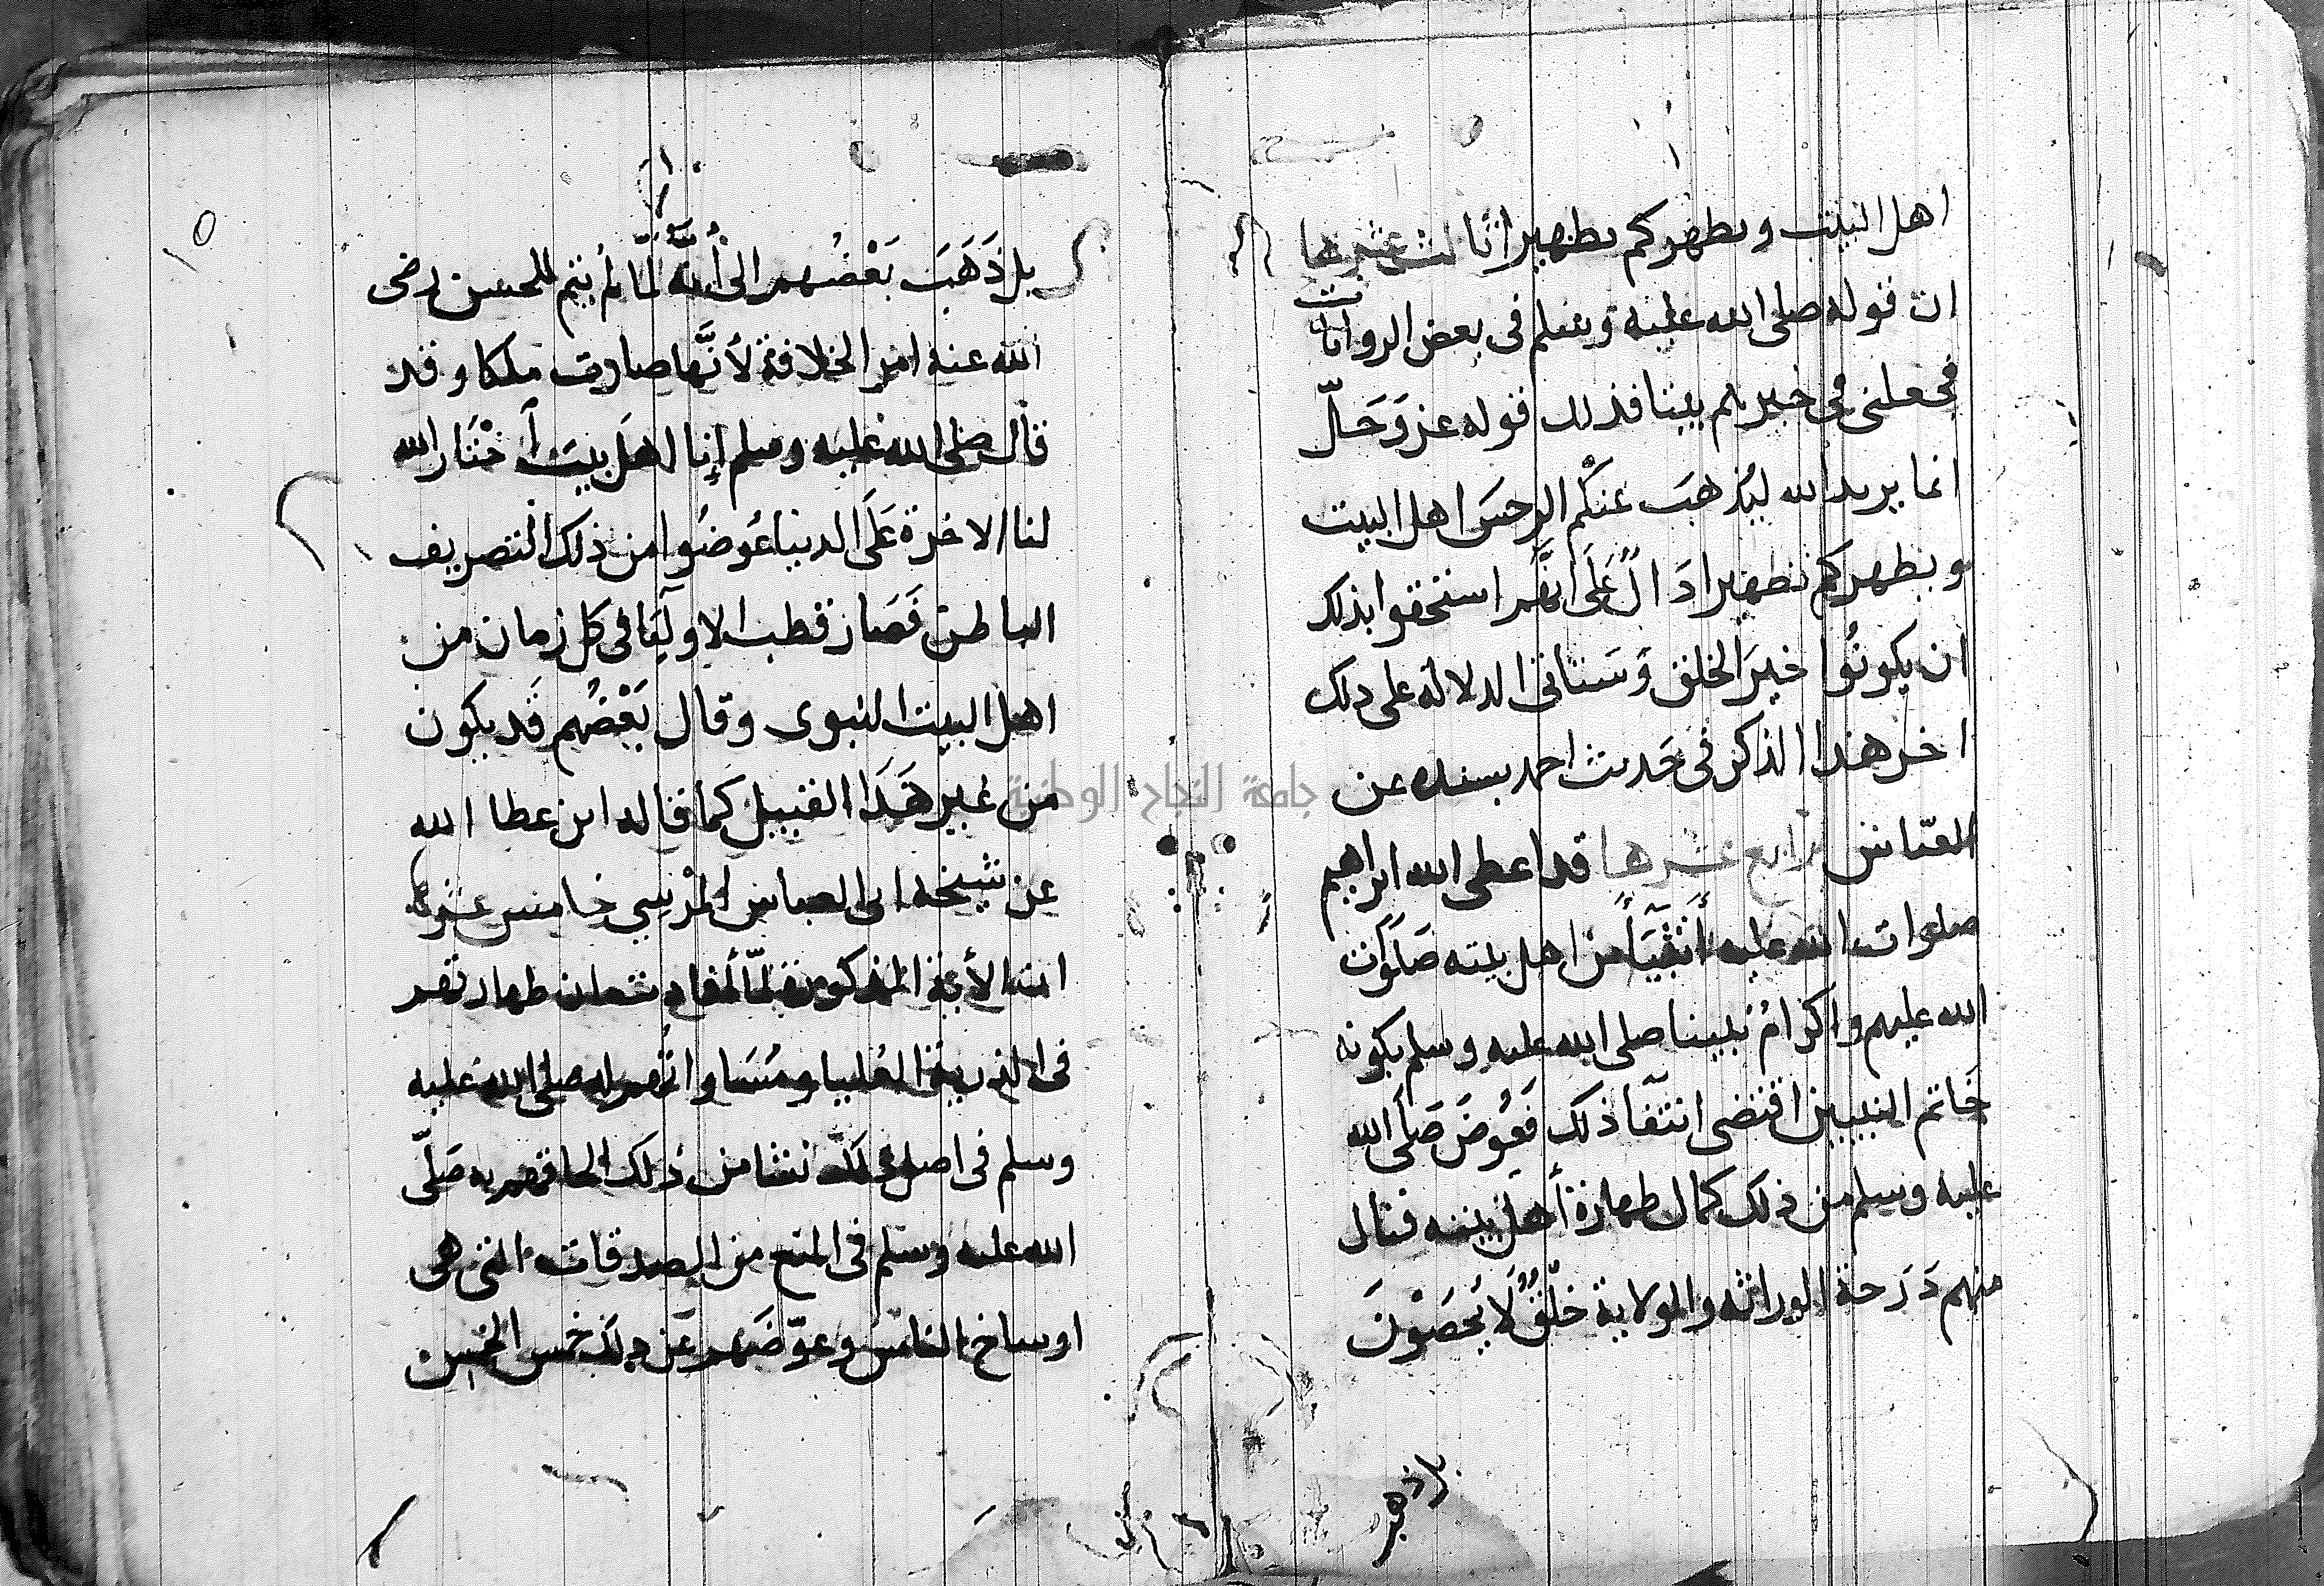 اهل البيت ويطهركم تطهيرا ثالث عشرها
ان قوله صلى الله عليه وسلم في بعض الروايات
فجعلني في خيرهم بيتا فذلك قوله عز وَجَلّ
انما يريد الله ليُذهبَ عَنْكُم الرجسَ اهل البيت
ويطهركم تطهيرا دَالٌ عَلَى انَّهم استحقوا بذلك
ان يكونُوا خيرَ الخلق وَسَتاتى الدلالة على ذلك
اخر هذا الذكر في حَديث احمد بسنده عن
العبّاس رابع عشرها قد اعطى الله ابراهيم
صلوات الله عليه أَنبيَآءً من اهل بيته صَلَوَات
الله عليهم واكرامُ نبينا صلى الله عليه وسلم بكونه
خاتم النبيين اقتضى انتفآ ذلك فَعُوضَ صَلى الله
عليه وسلم من ذلك كمال طهارة أهل بيته فنال
منهم دَرَجة الوراثه والولاية خلْقٌ لَا يُحصَوْنَ
بل ذهب
بل ذَهَبَ بَعْضُهم الى أَنَّهُ لَمَّا لم يتم للحسن رضى
الله عنه امر الخلافة لأَنَّها صارت ملكا وقد
قال صلى الله عليه وسلم إنا اهل بيت أختَار الله
لنا الاخرة عَلَى الدنيا عُوضُوا من ذلك التصريف
الباطن فَصَار قطب الاوليَآ في كل زمان من
اهل البيت النبوى وقال بَعْضُهم قَد يكون
من غير هَذا القبيل كما قاله ابن عطا الله
عن شيخه ابى العباس المُرْسِي خامس عشرها
ان الأية المذكورة لمّا أفادت ان طهارتهم
في الذرية العُليا ومُسَاواتُهم له صلى الله عليه
وسلم في اصل ذلك نشا من ذلك الحاقهم به صَلّى
الله عليه وسلم في المنع من الصدقات التى هى
اوساخ الناس وعوّضَهم عَن ذلك خمس الخمس